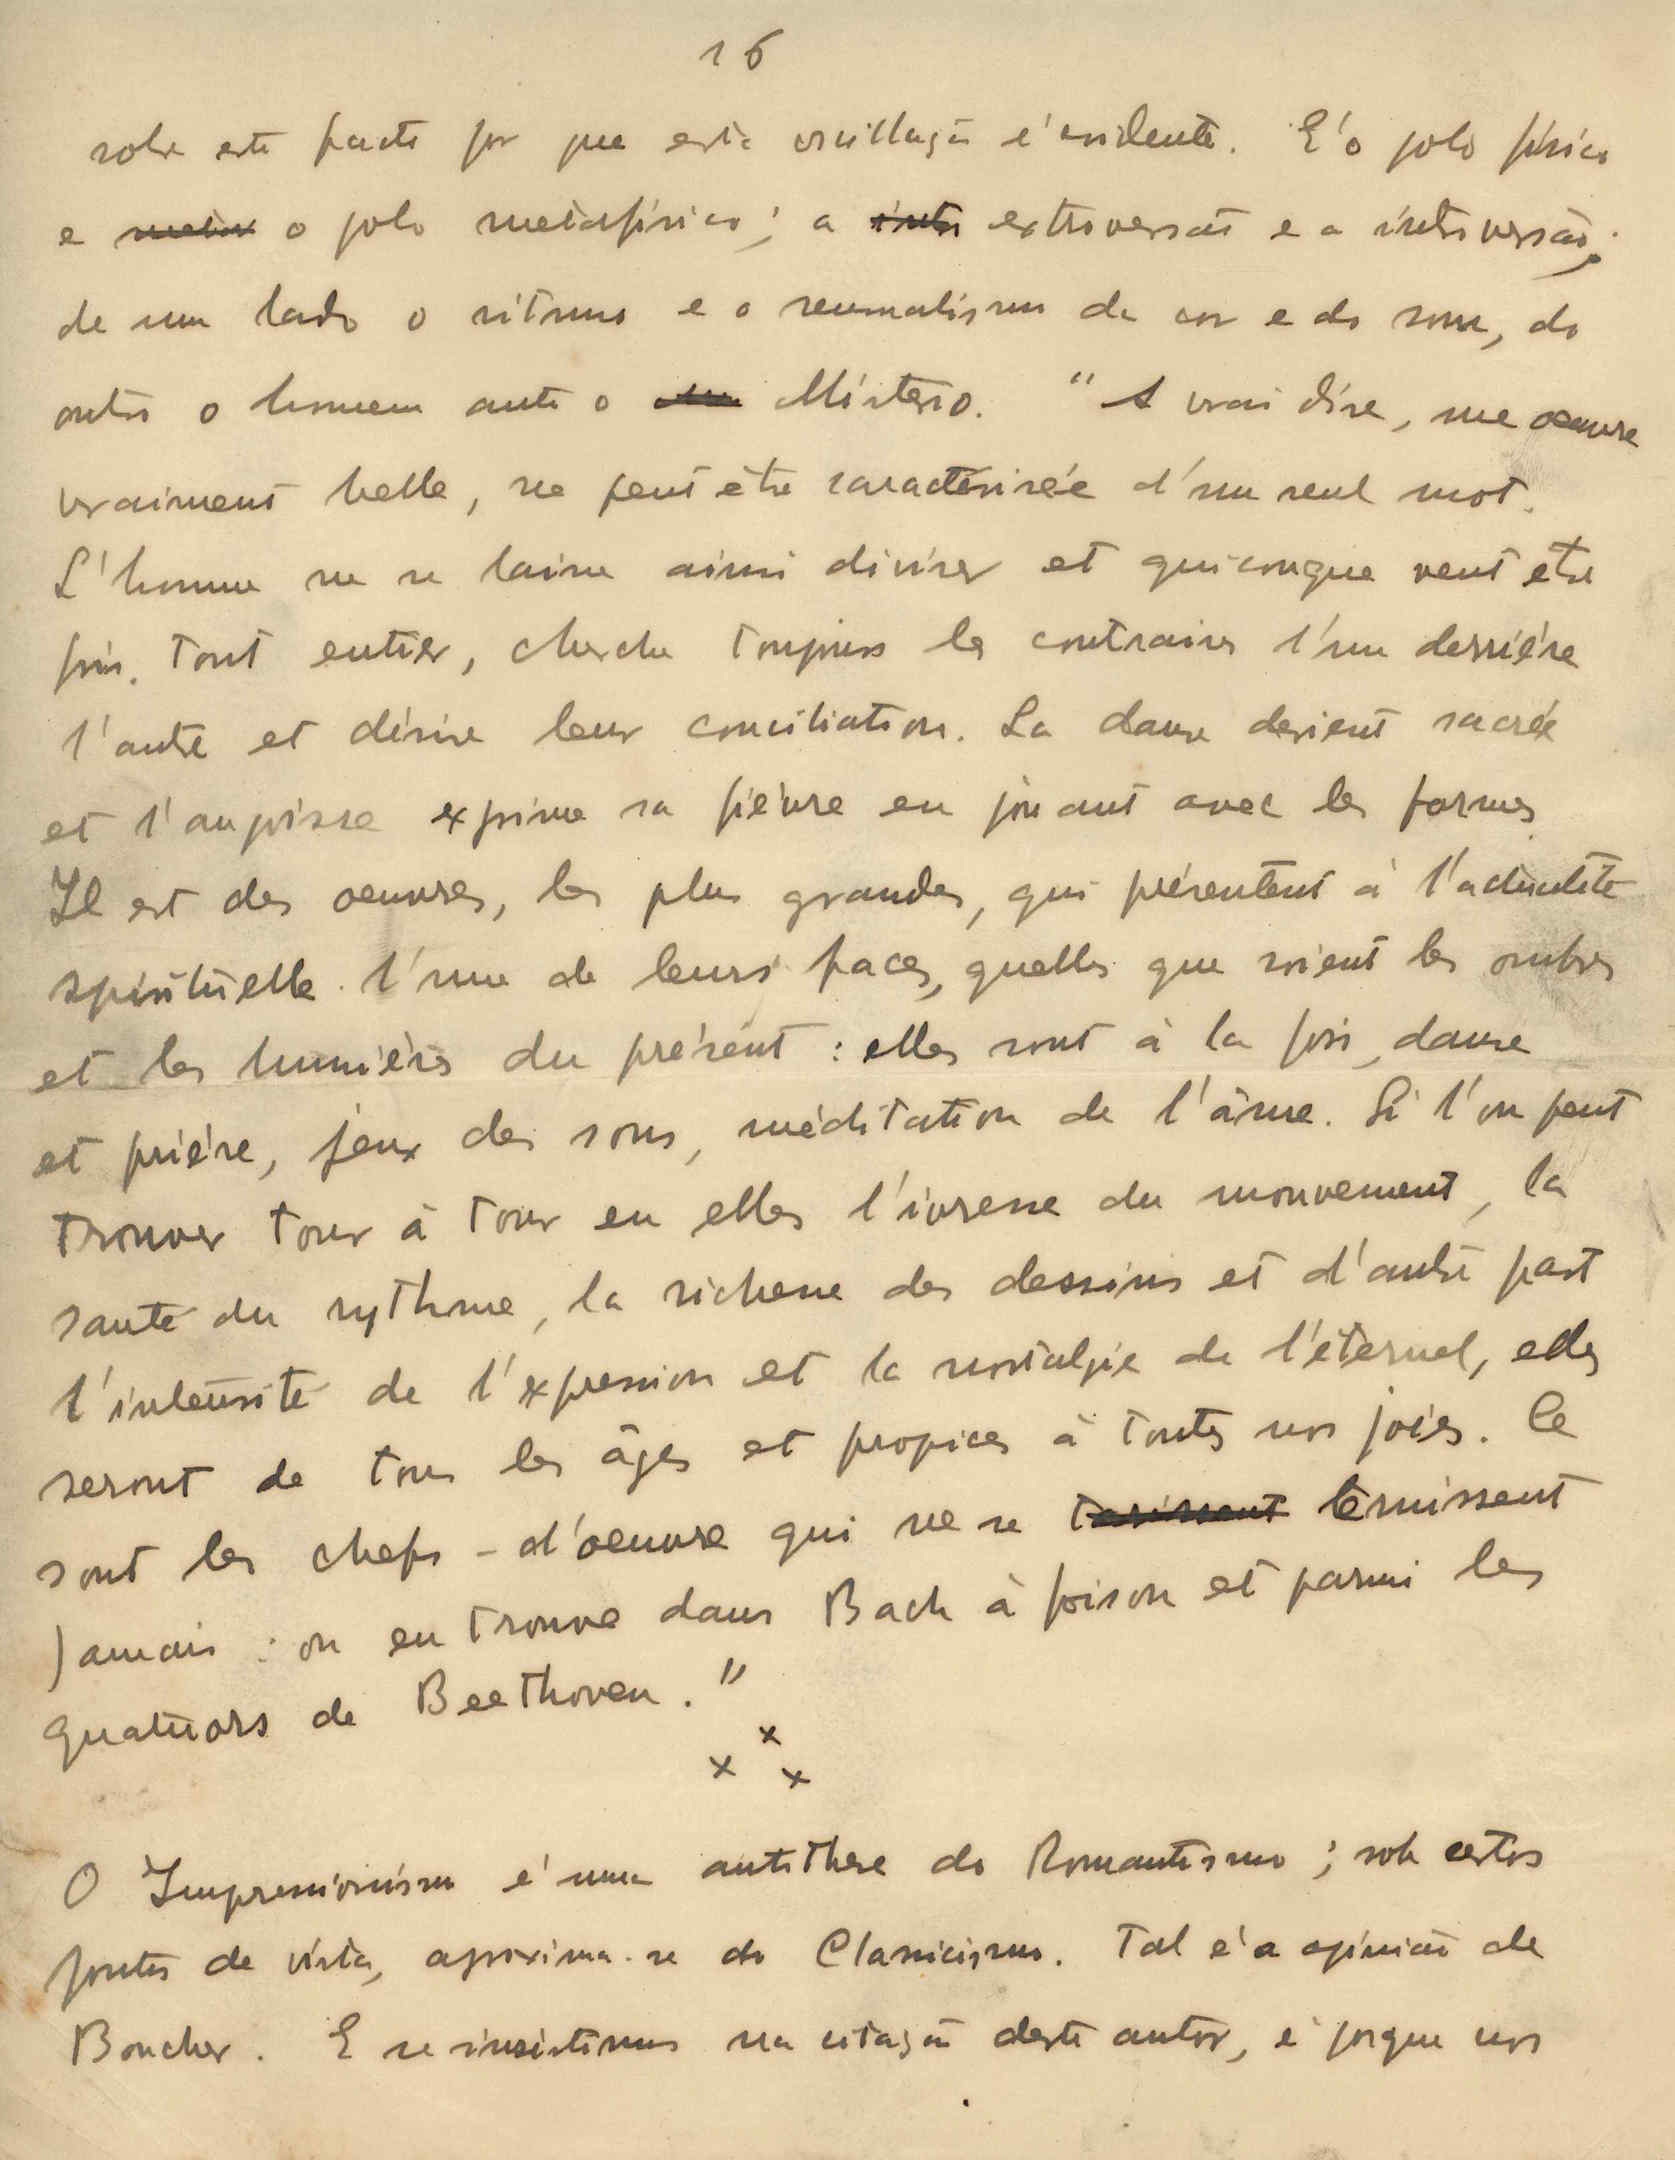 16
sobre este facto por que esta oscillação é evidente. É o polo físico
e o polo metafísico; a extroversão e a introversão;
de um lado o ritmo e o sensualismo da cor e do som, do
outro o homem ante o Mistério. "A vrai dire, une oeuvre
vraiment belle, ne peut être caractérisée d'un seul mot.
L'homme ne se laisse ainsi diviser et quiconque veut être
pris tout entier, cherche toujours les contraires l'un derrière
l'autre et désire leur conciliation. La danse devient sacrée
et l'angoisse exprime sa fièvre en jouant avec les formes.
Il est des oeuvres, les plus grandes, qui présentent à l'actualité
spirituelle l'une de leurs faces, quelles que soient les ombres
et les lumières du présent : elles sont à la fois, danse
et prière, jeux des sons, méditation de l'âme. Si l'on peut
trouver tour à tour en elles l'ivresse du mouvement, la
santé du rythme, la richesse des dessins et d'autre part
l'intensité de l'expression et la nostalgie de l'éternel, elles
seront de tous les âges et propices à toutes nos joies. Ce
sont les chefs-d'oeuvre qui ne se ternissent
jamais : on en trouve dans Bach à foison et parmi les
quatuors de Beethoven."
x x x
O Impressionismo é uma antithese do Romantismo; sob certos
pontos de vista, aproxima-se do Classicismo. Tal é a opinião de
Boucher. E se insistimos na citação deste autor, é porque nos